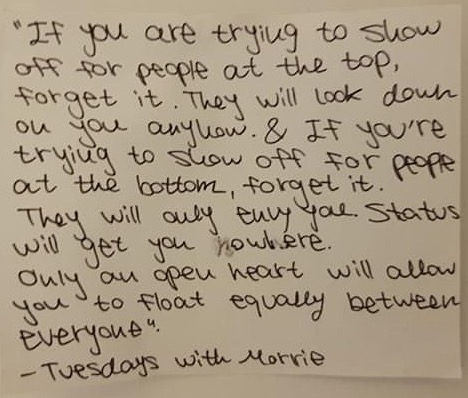 "If you are trying to show
off for people at the top,
forget it. They will look down
on you anyhow. & If you're
trying to show off for people
at the bottom, forget it.
They will only envy you. Status
will get you nowhere.
Only an open heart will allow
you to float equally between
everyone".
- Tuesdays with Morrie